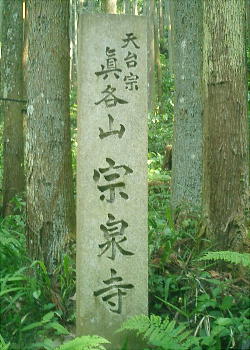 天台宗
眞各山宗泉寺